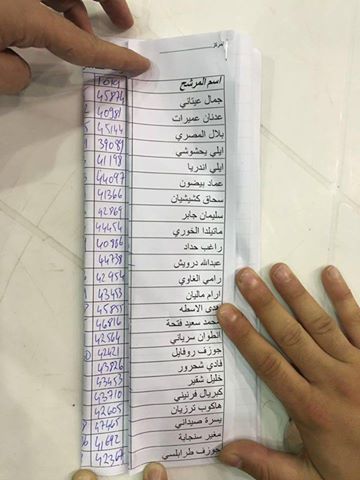 مركز
اسم المرشح Total
جمال عيتاني 45874
عدنان عميرات 40981
بلال المصري 45144
ايلي يحشوشي 39089
ايلي اندريا 41198
عماد بيضون 44097
سحاق كشيشيان 41366
سليمان جابر 42869
ماتيلدا الخوري 44454
راغب حداد 40986
عبدالله درويش 44738
رامي الغاوي 42954
ارام ماليان 43453
هدى الاسطه 45855
محمد سعيد فتحة 46816
انطوان سرياني 42564
جوزف روفايل 42421
فادي شحرور 43826
خليل شقير 43453
كبريال فرنيني 43710
هاكوب ترزيان 42605
يسرة صيداني 47465
مغير سنجابة 41692
جوزف طرابلسي 42367